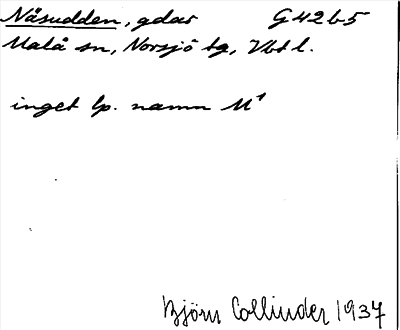 Näsudden, gdar G42b5
Malå sn, Norsjö tg, Vbtl.
inget lp. namn M¹
Björn Collinder 1937